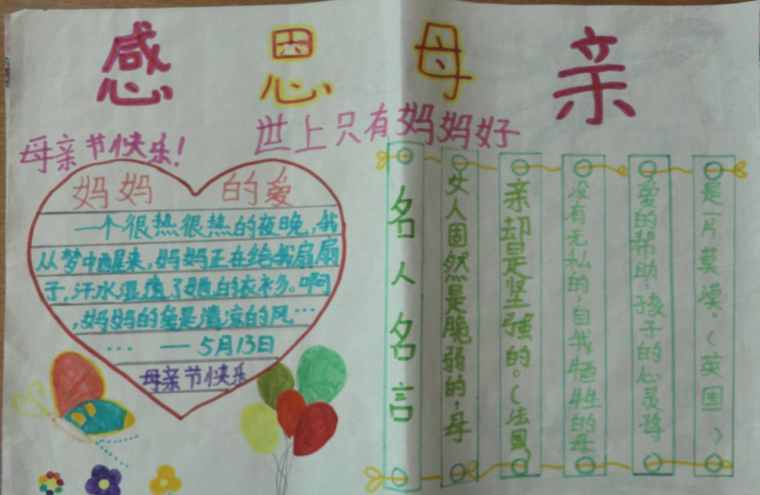 感恩母亲
世上只有妈妈好
母亲节快乐!
妈妈的爱
一个很热很热的夜晚,我
从梦中醒来,妈妈正在给我扇扇
子,汗水湿透了她的衣衫。啊
,妈妈的爱是清凉的风…
… — 5月13日
母亲节快乐
名人名言
女人固然是脆弱的,母
亲却是坚强的。(法国)
没有无私的,自我牺牲的母
爱的帮助,孩子的心灵将
是一片荒漠。(英国)